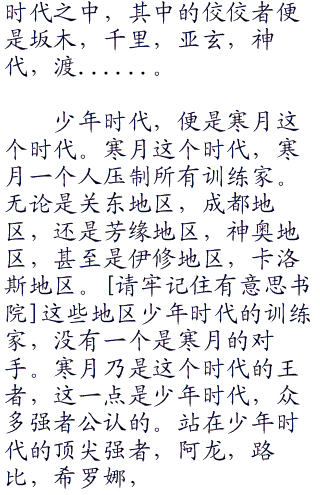 时代之中，其中的佼佼者便
是坂木，千里，亚玄，神
代，渡......。
少年时代，便是寒月这
个时代。寒月这个时代，寒
月一个人压制所有训练家。
无论是关东地区，成都地
区，还是芳缘地区，神奥地
区，甚至是伊修地区，卡洛
斯地区。[请牢记住有意思书
院]这些地区少年时代的训练
家，没有一个是寒月的对
手。寒月乃是这个时代的王
者，这一点是少年时代，众
多强者公认的。站在少年时
代的顶尖强者，阿龙，路
比，希罗娜，